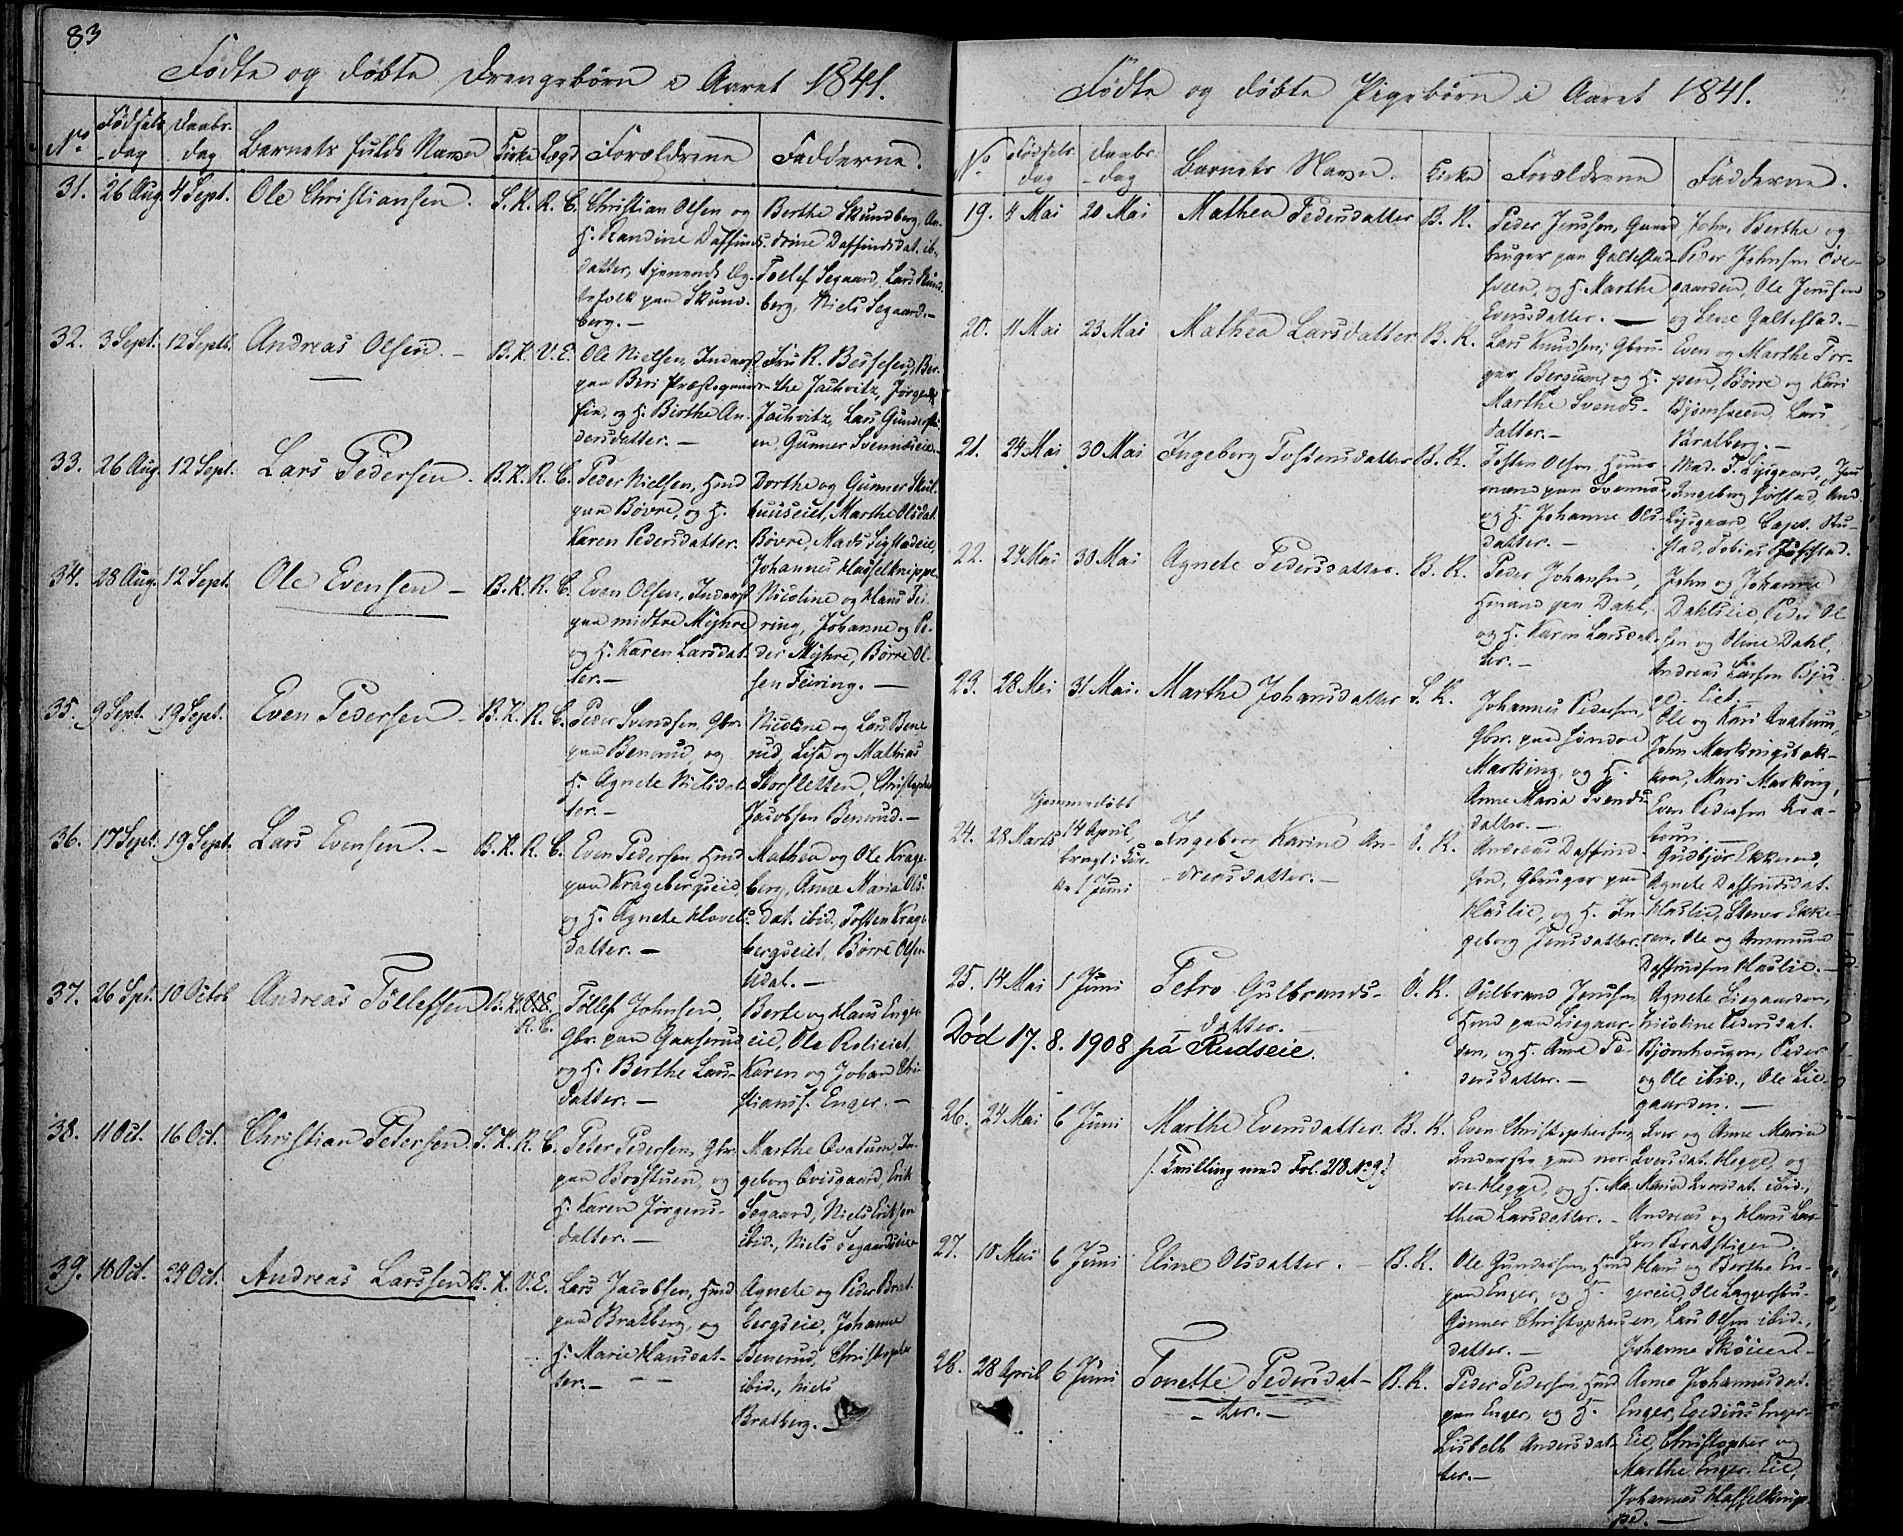 83
Fødte og døbte Drengebørn i Aaret 1841.
No Fødsels dag Daabs dag Barnets fulde Navn Kirke Lægd Forældrene Fadderne.
31. 26 Aug. 4 Sept. Ole Christiansen. S. K. R. C.
Christian Olsen og
H. Randine Daffinds-
datter, tjenende Æg-
tefolk paa Skund-
berg. —
Berthe Skundberg, An-
drine Daffindsdat. ib.,
Tollef Segaard, Lars Skund-
berg, Niels Segaard. —
32. 3 Sept. 12 Septb. Andreas Olsen. — B. K. V. E.
Ole Nielsen, Inderst
paa Biri Præstegaard-
eie, og H. Birthe An-
dersdatter. —
Fru R. Bessesen, Ber-
the Jachwitz, Jørgen
Jachwitz, Lars Gunders
en Gunner Svennæseie.
33. 26 Aug. 12 Sept. Lars Pedersen. B. K. R. C.
Peder Nielsen, Hmd
paa Bøvre, og H.
Karen Pedersdatter.
Dorthe og Gunner Skul-
huuseiet, Marthe Olsdat.
Bøvre, Mads Sigstadeie,
Johannes Hasselknippe.
34. 28 Aug. 12 Sept. Ole Evensen — B. K. R. C.
Even Olsen, Inderst
paa midtre Myhre
og H. Karen Larsdat-
ter. —
Nicoline og Hans Fei-
ring, Johanne og Pe-
der Myhre, Børre Ol-
sen Feiring. —
35. 9 Sept. 19 Sept. Even Pedersen — B. K. R. C.
Peder Svendsen, Gbr.
paa Benerud, og
H. Agnete Nielsdat-
ter. —
Nicoline og Lars Bene-
rud, Lisa og Mathias
Storsletten, Christopher
Jacobsen Benerud. —
36. 17 Sept. 19 Sept. Lars Evensen. — B. K. R. C.
Even Pedersen, Hmd
paa Kragebergseie,
og H. Agnete Havels-
datter. —
Mathea og Ole Krage-
berg, Anne Maria Ols-
dat. ibid., Tosten Krage-
bergseiet, Børre Olsen
Udal. —
37. 26 Spt. 10 Octob. Andreas Tollefsen B. K. V. E.
R. C.
Tollef Johnsen,
Gbr. paa Gaaserud
og H. Berthe Lars-
datter. —
Berte og Hans Enger-
eie, Ole Rolieiet,
Karen og Johan Chri-
stians. Enger. —
38. 11 Oct. 16 Oct. Christian Pedersen. S. K. R. C.
Peter Pedersen, Gbr.
paa Brostuen, og
H. Karen Jörgens-
datter. —
Marthe Ovatum, In-
geborg Ovisgaard, Erik
Segaard, Niels Eriksen
ibid., Niels Segaardseie
39. 18 Oct. 24 Oct. Andreas Larssen B. K. V. E.
Lars Jacobsen, Hmd
paa Bratberg, og
H. Marie Hansdat-
ter. —
Agnete og Peder Brat-
bergseie, Johanne
Benerud, Christopher
ibid., Niels
Bratberg. —
Fødte og døbte Pigebørn i Aaret 1841.
No Fødsels dag Daabs dag Barnets Navn. Kirke Forældrene Fadderne.
19. 4 Mai 20 Mai Mathea Pedersdatter B. K.
Peder Jensson, Gaard-
bruger paa Galtestad-
sveen, og H. Marthe
Eversdatter. —
John, Berthe og
Peder Johnsen Øve-
gaarden, Ole Jensen
og Lene Galtestad. —
20. 11 Mai 23 Mai Mathea Larsdatter B. K.
Lars Knudsen, Gbru-
ger, Bergum, og H.
Marthe Svends-
datter. —
Even og Marthe Tor-
pen, Børre og Kari
Bjørnsveen, Lars
Bratberg. —
21. 24 Mai. 30 Mai Ingeborg Tostensdatter B. K.
Tosten Olsen, Huus-
mand paa Svennæs,
og H. Johanne Ols-
datter. —
Mad. F. Lysgaard, Jens
Ingeborg
Lysgaard, Capt. Ru-
stad, Tobias
22. 24 Mai 30 Mai Agnete Pedersdatter. B. K.
Peder Johansen,
Hmand paa Dahl,
og H. Karen Larsdat-
ter. —
John og Johanne
Dahlseie, Peder Ol-
sen og Oline Dahl,
Andreas Larsen Bju-
Eiet. —
23. 28 Mai 31 Mai. Marthe Johansdatter S. K.
Johannes Pedersen,
Gbr. paa søndre
Marking, og H.
Anne Maria Svends-
datter. —
Ole og Kari Avatum,
John Markingsbak-
ken, Mari Marking,
Even Pedersen Kra-
boun. —
24. 28 Marts Hjemmedøbt
14 April,
bragt i Kir-
ke 1 Juni
Ingeborg Karine An-
dreasdatter. — Ö. K.
Andreas Daffind-
sen, Gbruger paa
Haslie, og H. In-
geborg Jensdatter.
Gudbjør Ekkeren,
Agnete Daffindsdat.
Haslie, Stener Ekke-
ren, Ole og Ammund
Daffindsen Haslie. —
25. 14 Mai 1 Juni Petro Gulbrands-
datter. — Ö. K.
Gulbrand Jenssen
Hmd paa Liegaar-
den, og H. Anne Pe-
dersdatter. —
Agnete Liegaarden,
Nicoline Pedersdat.
Bjørnhaugen, Peder
og Ole ibid., Ole Lie-
gaarden. —
Død 17. 8. 1908 på Rudseie.
26. 24 Mai 6 Juni Marthe Evensdatter. B. K.
(Tvilling med Fol. 218 No 9.)
Even Christophersen,
Inderst paa nor-
dre Hegge, og H. Ma-
thea Larsdatter. —
Iver og Anne Maria
Iversdat. Hegge, og
Maria Iversdat. ibid.,
Andreas og Hans Lar-
sen Bratstigen.
27. 10 Mai 6 Juni Eline Olsdatter. — B. K.
Ole Gundersen, Hmd
paa Enger, og H.
Gønner Christophers-
datter. —
Hans og Berthe En-
gereie, Ole Laggerstu-
en, Lars Olsen ibid.,
Johanne Skøiien. —
28. 28 April 6 Juni Tonette Pedersdat-
ter. — B. K.
Peder Pedersen, Hmd
paa Enger, og H.
Lisbeth Andersdat-
ter. —
Anne Johannesdat.
Enger, Egedius Enger-
Eie, Christopher og
Marthe Enger-Eie,
Johannes Hasselknip-
pe. —